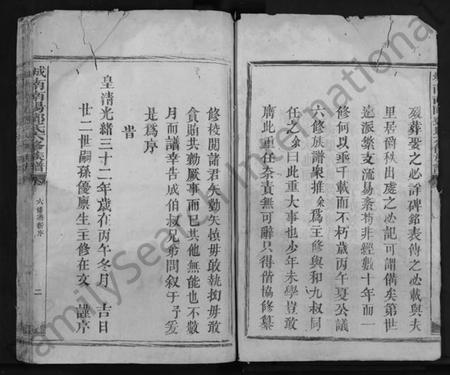 歿葬娶之必詳碑銘表傳之必載與夫
里居爵秩出處之必記可謂備矣第世
遠派繁支流易紊苟非經數十年而一
修何以垂千載而不朽歲丙午夏公議
六修族譜衆推余爲主修與和九叔同
任之余曰此重大事也少年未學豈敢
膺此重任奈責無可辭只得偕協修纂
修校閱諸君矢勤矢慎毋敢執拗毋敢
貪賍共勷厥事而已其他無能也不數
月而議幸告成伯叔兄弟問敘于予爰
是爲序
旹
皇清光緒三十二年歲在丙午冬月 吉日
廿二世嗣孫優廩生主修在文 謹序
城南南陽鄧氏六修族譜
六修譜序
二
FamilySearch International